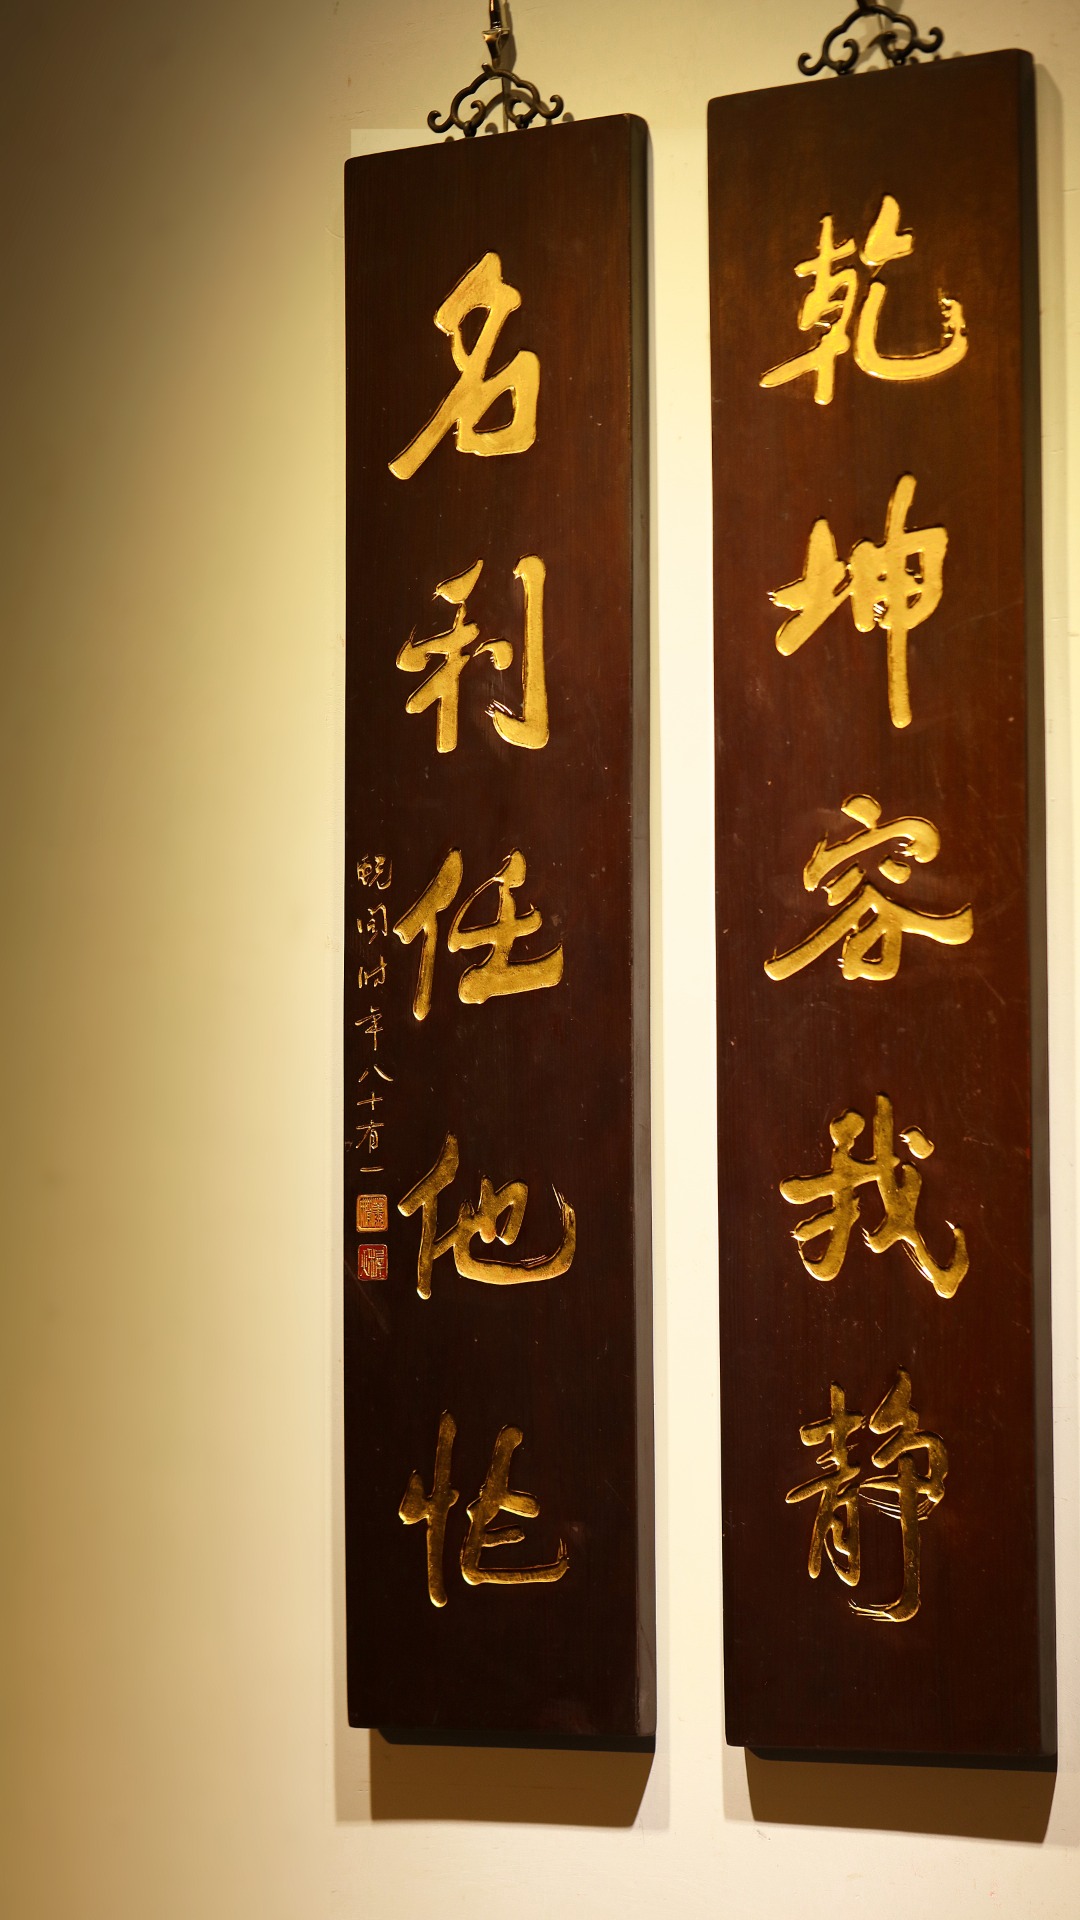 乾坤容我静
名利任他忙
鲵闻时年八十有一